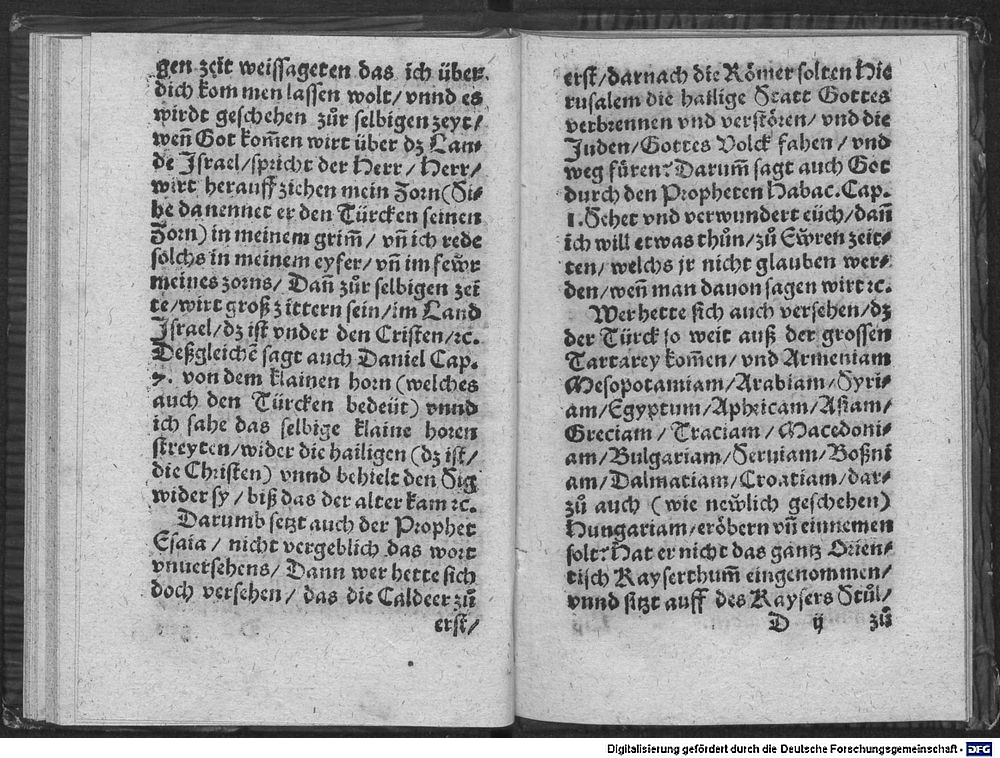 gen zeit weissageten das ich über
dich kommen lassen wolt/ vnnd es
wirdt geschehen zůr selbigen zeyt/
weñ Got kom̃en wirt über dz Lan-
de Jsrael/spricht der Herr/ Herr/
wirt herauff ziehen mein Zorn(Si-
he da nennet er den Türcken seinen
Zorn) in meinem grim̃/ vñ ich rede
solchs in meinem eyfer/ vñ im feẅr
meines zorns/ Dañ zůr selbigen zei
te/wirt groß zittern sein/im Land
Jsrael/dz ist vnder den Cristen/ꝛc.
Deßgleichẽ sagt auch Daniel Cap.
7. von dem klainen horn (welches
auch den Türcken bedeüt) vnnd
ich sahe das selbige klaine horen
streyten/wider die hailigen (dz ist/
die Christen) vnnd behielt den Sig
wider sy/ biß das der alter kam ꝛc.
Darumb setzt auch der Prophet
Esaia/ nicht vergeblich das wort
vnuersehens/ Dann wer hette sich
doch versehen/ das die Caldeer zů
erst/
erst/darnach die Römer solten Hie
rusalem die hailige Statt Gottes
verbrennen vnd verstören/ vnd die
Juden/Gottes Volck fahen/ vnd
weg füren? Darum̃ sagt auch Got
durch den Propheten Habac. Cap.
1. Sehet vnd verwundert eüch/dañ
ich will etwas thůn/zů Eẅren zeit-
ten/ welchs jr nicht glauben wer-
den/weñ man dauon sagen wirt ꝛc.
Wer hette sich auch versehen/dz
der Türck so weit auß der grossen
Tartarey kom̃en/ vnd Armeniam
Mesopotamiam/Arabiam/Syri-
am/Egyptum/Aphricam/Asiam/
Greciam/ Traciam/ Macedoni-
am/Bulgariam/Seruiam/Boßni
am/Dalmatiam/Croatiam/dar-
zů auch (wie neẅlich geschehen)
Hungariam/eröbern vñ einnemen
solt? Hat er nicht das gantz Orien-
tisch Kayserthum̃ eingenommen/
vnnd sitzt auff des Kaysers Stůl/
D ij zů
Digitalisierung gefördert durch die Deutsche Forschungsgemeinschaft - DFG